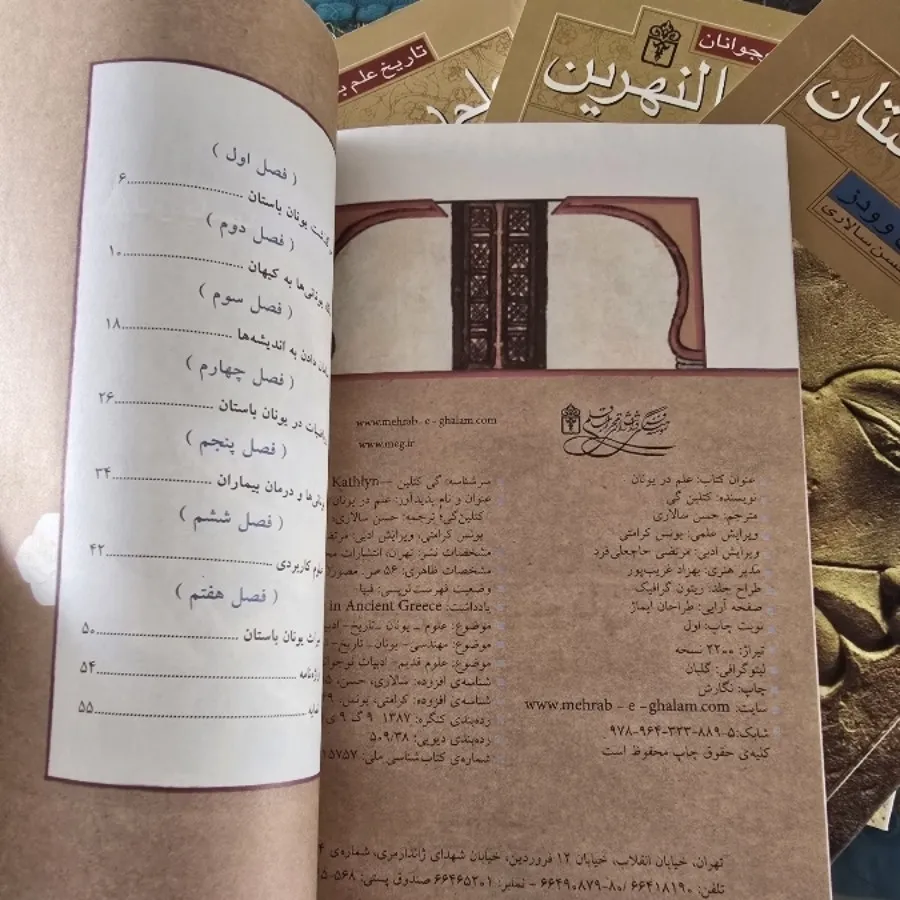 تاریخ علم
جوانان
النهرین
وودز
سن سالاری
( فصل اول )
گذشت یونان باستان ........ ۶
( فصل دوم )
یونانی‌ها به کیهان ........ ۱۰
( فصل سوم )
دادن به اندیشه‌ها ........ ۱۸
( فصل چهارم )
در یونان باستان ........ ۲۶
( فصل پنجم )
و درمان بیماران ........ ۳۴
( فصل ششم )
کاربردی ........ ۴۲
( فصل هفتم )
یونان باستان ........ ۵۰
........ ۵۴
........ ۵۵
عنوان کتاب: علم در یونان
نویسنده: کتلین گی
مترجم: حسن سالاری
ویرایش علمی: یونس کرامتی
ویرایش ادبی: مرتضی حاجعلی‌فرد
مدیر هنری: بهزاد غریب‌پور
طراح جلد: زیتون گرافیک
صفحه آرایی: طراحان ایماژ
نوبت چاپ: اول
تیراژ: ۲۲۰۰ نسخه
لیتوگرافی: گلبان
چاپ: نگارش
سایت: www.mehrab - e - ghalam.com
شابک: ۵-۸۸۹-۳۲۳-۹۶۴-۹۷۸
کلیه‌ی حقوق چاپ محفوظ است
www.mehrab - e - ghalam.com
www.meg.ir
سرشناسه: گی کتلین — Kathlyn
عنوان و نام پدیدآور: علم در یونان
کتلین گی؛ ترجمه: حسن سالاری،
یونس کرامتی، ویرایش ادبی:
مشخصات نشر: تهران، انتشارات
مشخصات ظاهری: ۵۶ ص. مصور
وضعیت فهرست نویسی: فیپا
یادداشت: in Ancient Greece
موضوع: علوم ـ یونان ـ تاریخ ـ
موضوع: مهندسی- یونان- تاریخ -
موضوع: علوم قدیم- ادبیات
شناسه‌ی افزوده: سالاری، حسن،
شناسه‌ی افزوده: کرامتی، یونس،
رده‌بندی کنگره: ۱۳۸۷ ۹ گ ۹
رده‌بندی دیویی: ۵۰۹/۳۸
شماره‌ی کتاب‌شناسی ملی: ۱۵۷۵۷
تهران، خیابان انقلاب، خیابان ۱۲ فروردین، خیابان شهدای ژاندارمری، شماره‌ی
تلفن: ۶۶۴۱۸۱۹۰ /۸۰-۶۶۴۹۰۸۷۹ - نمابر: ۶۶۴۶۵۲۰۱ صندوق پستی: ۵۶۸-